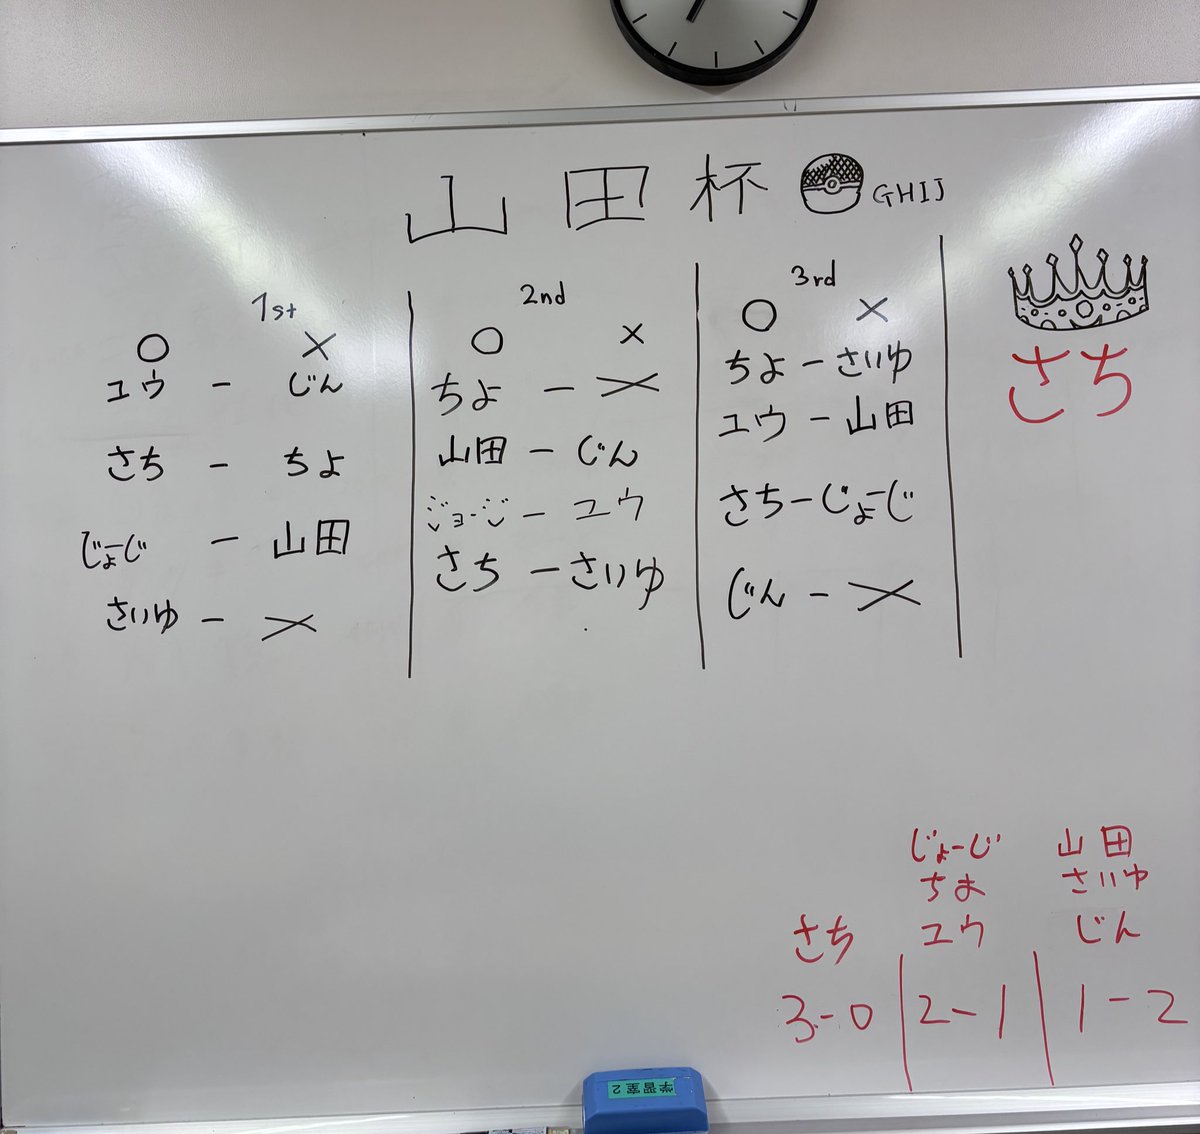 山田杯 GHIJ
1st
○ ×
ユウ − じん
さち − ちよ
じょーじ − 山田
さいゆ − ×
2nd
○ ×
ちよ − ×
山田 − じん
ジョージ − ユウ
さち − さいゆ
3rd
○ ×
ちよ − さいゆ
ユウ − 山田
さち − じょーじ
じん − ×
さち
さち
3-0
じょーじ
ちよ
ユウ
2-1
山田
さいゆ
じん
1-2
学習室2